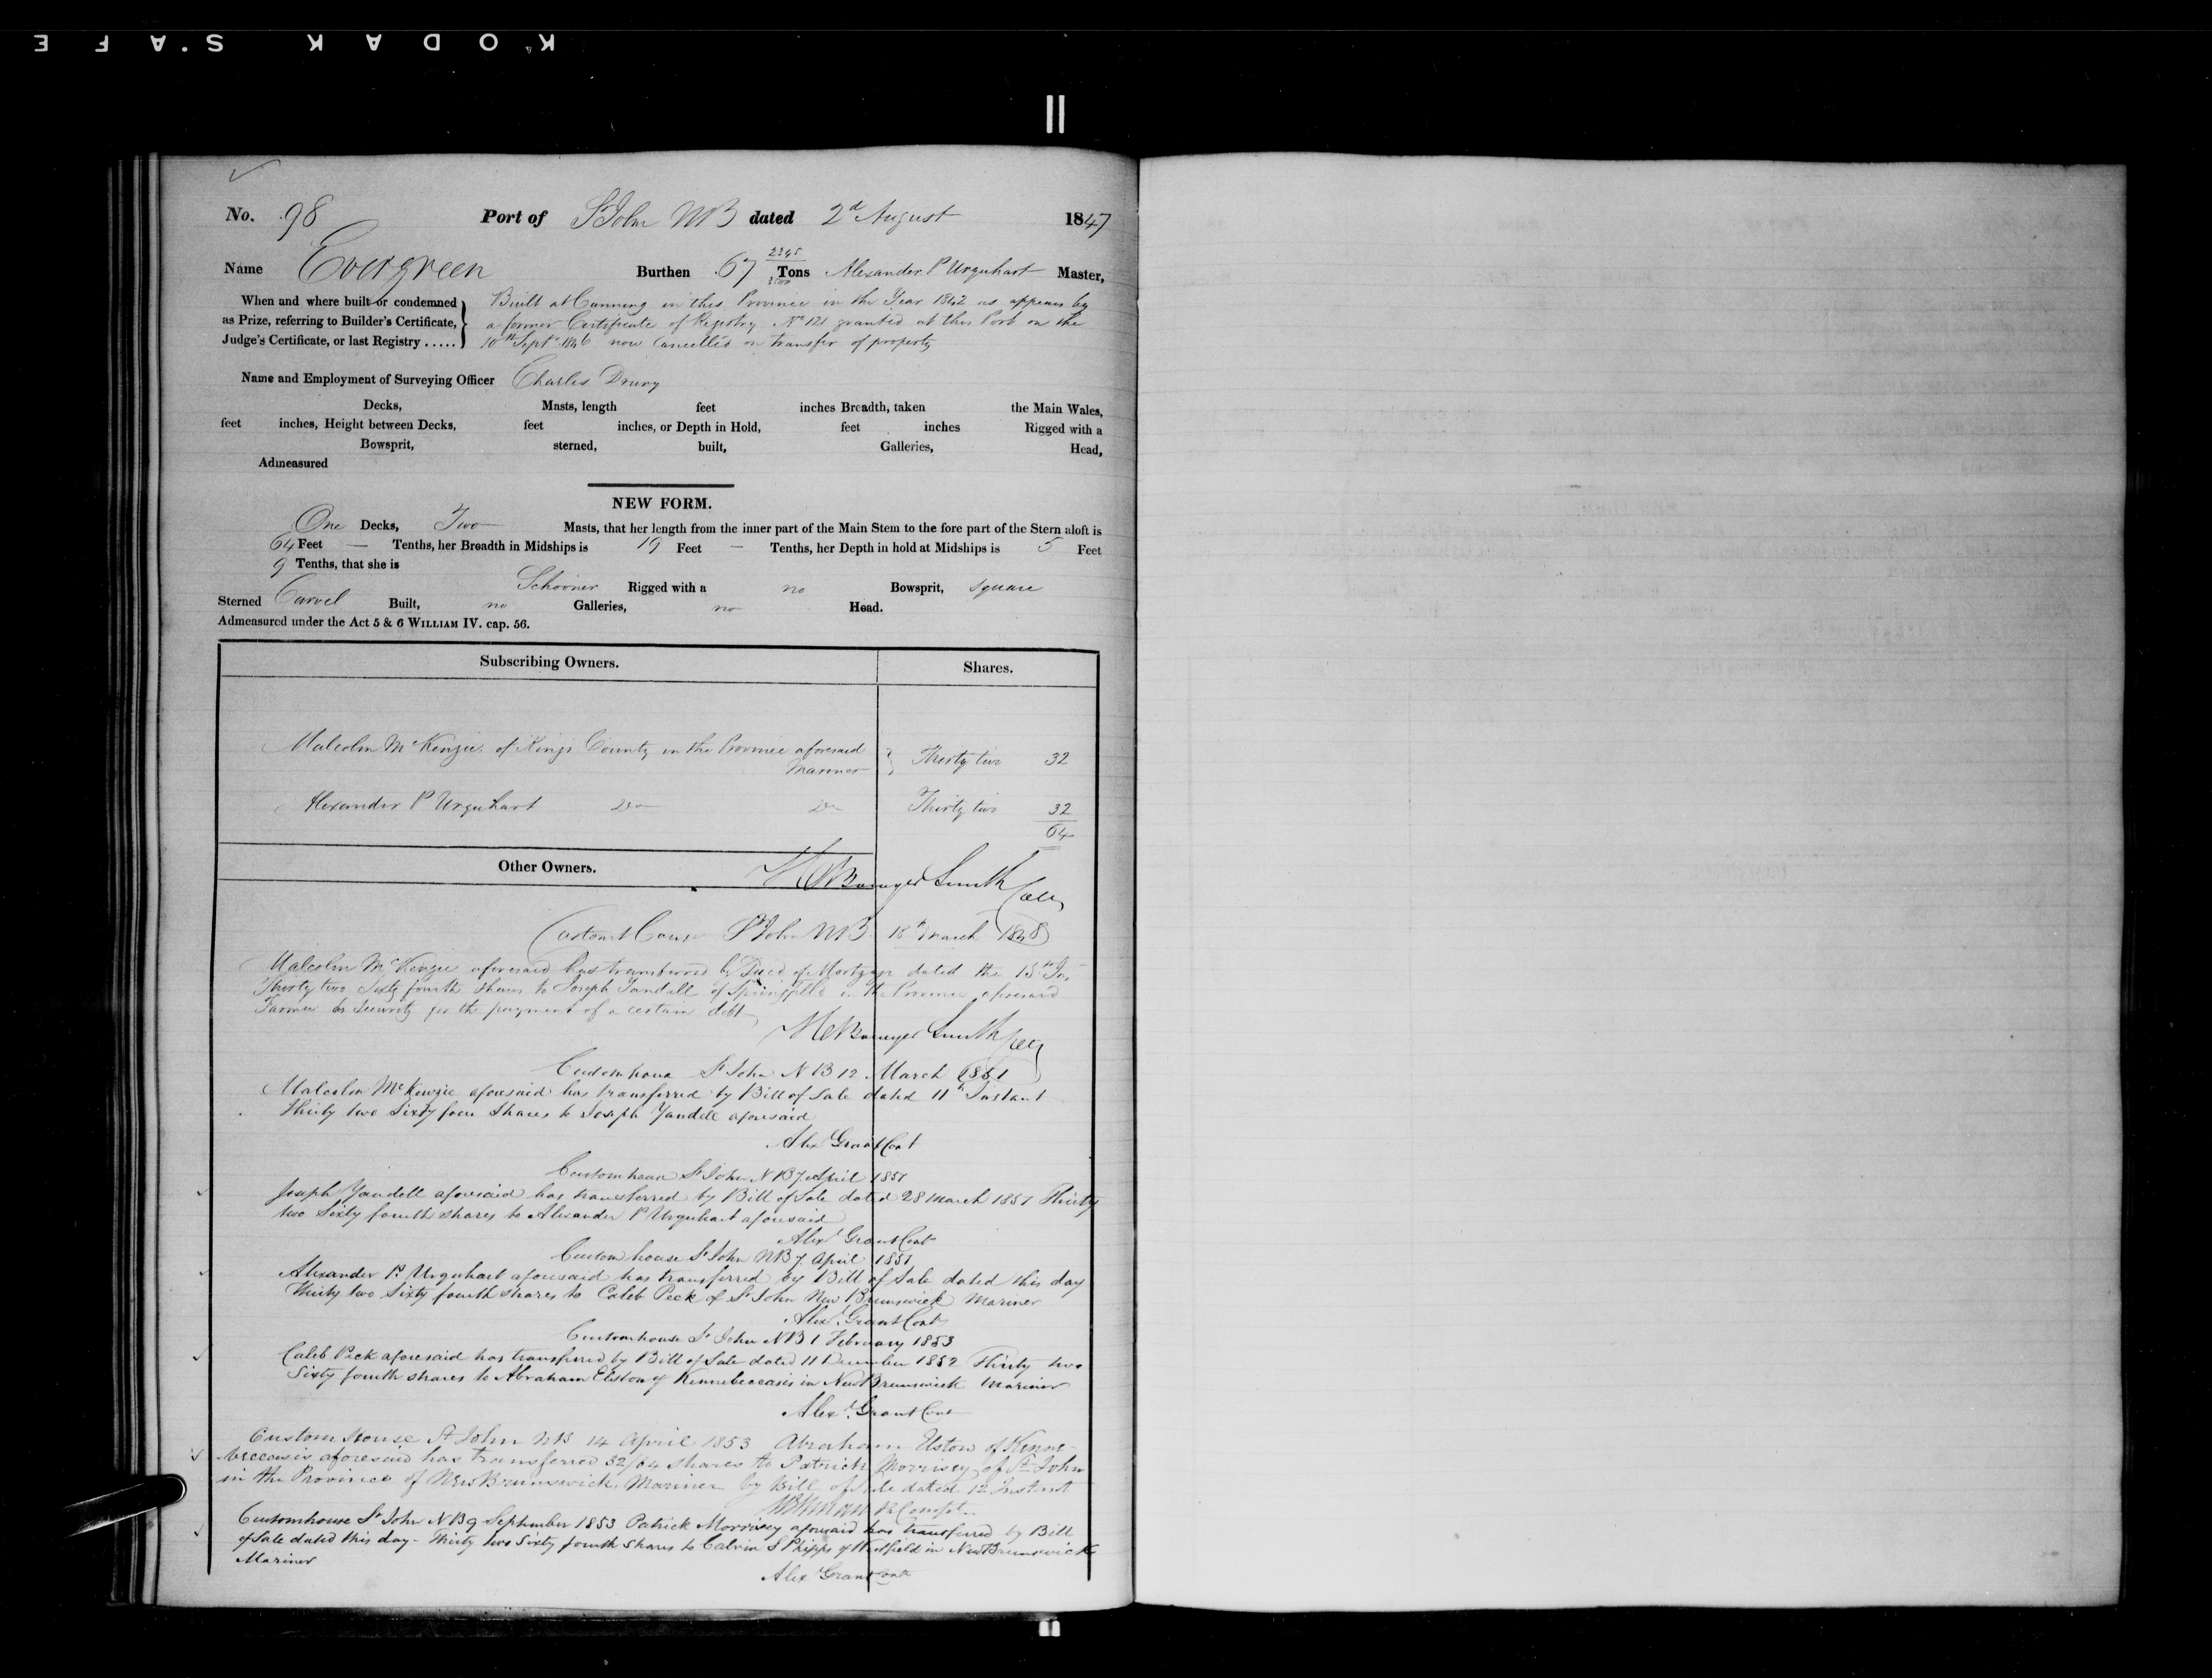 KODAK S.AFE
No. 98 Port of St John NB dated 2d August 1847
Name Evergreen Burthen 67 2345/3500 Tons Alexander P Urquhart Master,
When and where built or condemned as Prize, referring to Builder's Certificate, Judge's Certificate, or last Registry .....
Built at Canning in this Province in the Year 1842 as appears by
a former Certificate of Registry No 121 granted at this Port on the
10th Sept 1846 now Cancelled on transfer of property
Name and Employment of Surveying Officer Charles Drury
Decks, Masts, length feet inches Breadth, taken the Main Wales,
feet inches, Height between Decks, feet inches, or Depth in Hold, feet inches Rigged with a
Bowsprit, sterned, built, Galleries, Head,
Admeasured
NEW FORM.
One Decks, Two Masts, that her length from the inner part of the Main Stem to the fore part of the Stern aloft is
64 Feet — Tenths, her Breadth in Midships is 19 Feet — Tenths, her Depth in hold at Midships is 5 Feet
9 Tenths, that she is
Schooner Rigged with a no Bowsprit, square
Sterned Carvel Built, no Galleries, no Head.
Admeasured under the Act 5 & 6 WILLIAM IV. cap. 56.
Subscribing Owners. Shares.
Malcolm McKenzie of Kings County in the Province aforesaid
Mariner } Thirty two 32
Alexander P Urquhart Do Do Thirty two 32
64
Other Owners.
Smith Coll
Custom House St John NB 18th March 1848
Malcolm McKenzie aforesaid has transferred by Deed of Mortgage dated the 15th
Thirty two Sixty fourth Shares to Joseph Yandell of Springfield in the Province aforesaid
Farmer as security for the payment of a certain debt
Smith Coll
Customhouse St John NB 12 March 1851
Malcolm McKenzie aforesaid has transferred by Bill of Sale dated 11th Instant
Thirty two Sixty four Shares to Joseph Yandell aforesaid
Alexr Grant Cont
Customhouse St John NB 7 April 1851
Joseph Yandell aforesaid has transferred by Bill of Sale dated 28 March 1851 Thirty
two Sixty fourth shares to Alexander P Urquhart aforesaid
Alexr Grant Cont
Custom house St John NB 7 April 1851
Alexander P. Urquhart aforesaid has transferred by Bill of Sale dated this day
Thirty two Sixty fourth shares to Caleb Peck of St John New Brunswick Mariner
Alexr Grant Cont
Customhouse St John NB 1 February 1853
Caleb Peck aforesaid has transferred by Bill of Sale dated 11 December 1852 Thirty two
Sixty fourth shares to Abraham Elston of Kennebeccasis in New Brunswick Mariner
Alexr Grant Cont
Custom House St John NB 14 April 1853 Abraham Elston of Kenne-
beccasis aforesaid has transferred 32/64 shares to Patrick Morrisey of St John
in the Province of New Brunswick, Mariner by Bill of Sale dated 12 Instant
Compt
Customhouse St John NB 9 September 1853 Patrick Morrisey aforesaid has transferred by Bill
of Sale dated this day - Thirty two Sixty fourth Shares to Calvin S Phipps of Westfield in New Brunswick
Mariner
Alexr Grant Cont